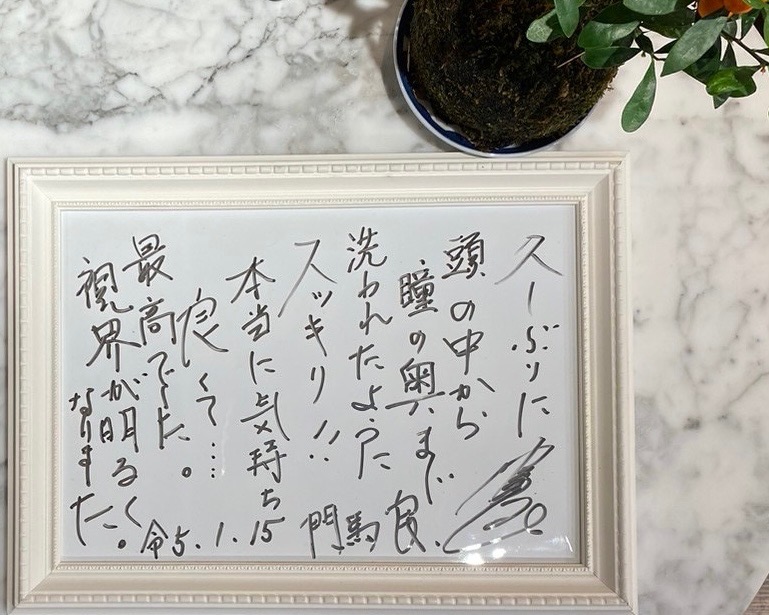 久しぶりに
頭の中から
瞳の奥まで
洗われたように
スッキリ!!
本当に気持ち
良くて……
最高でした。
視界が明るく
なりました。
令5.1.15
門馬良.